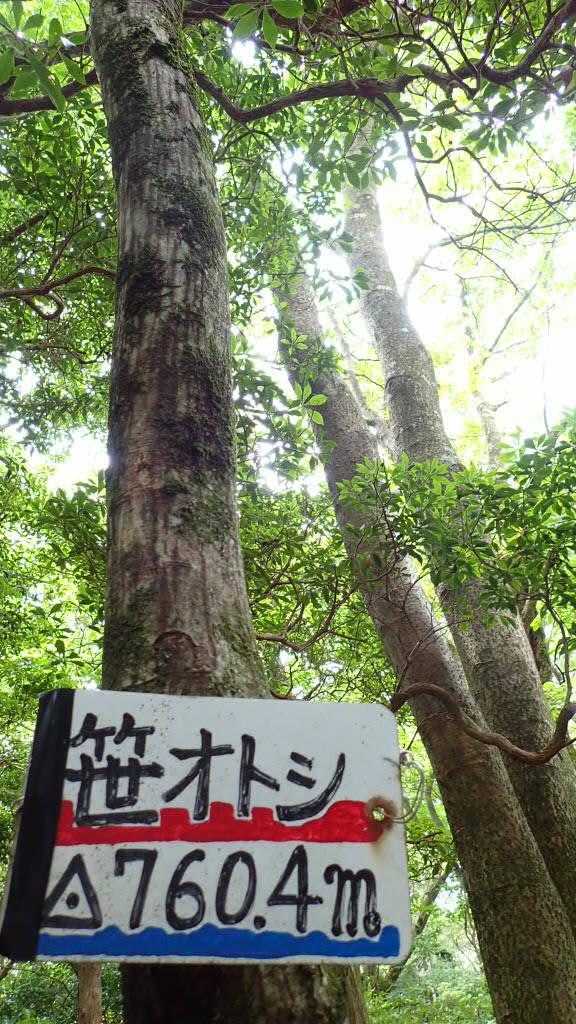 笹オトシ
△760.4m